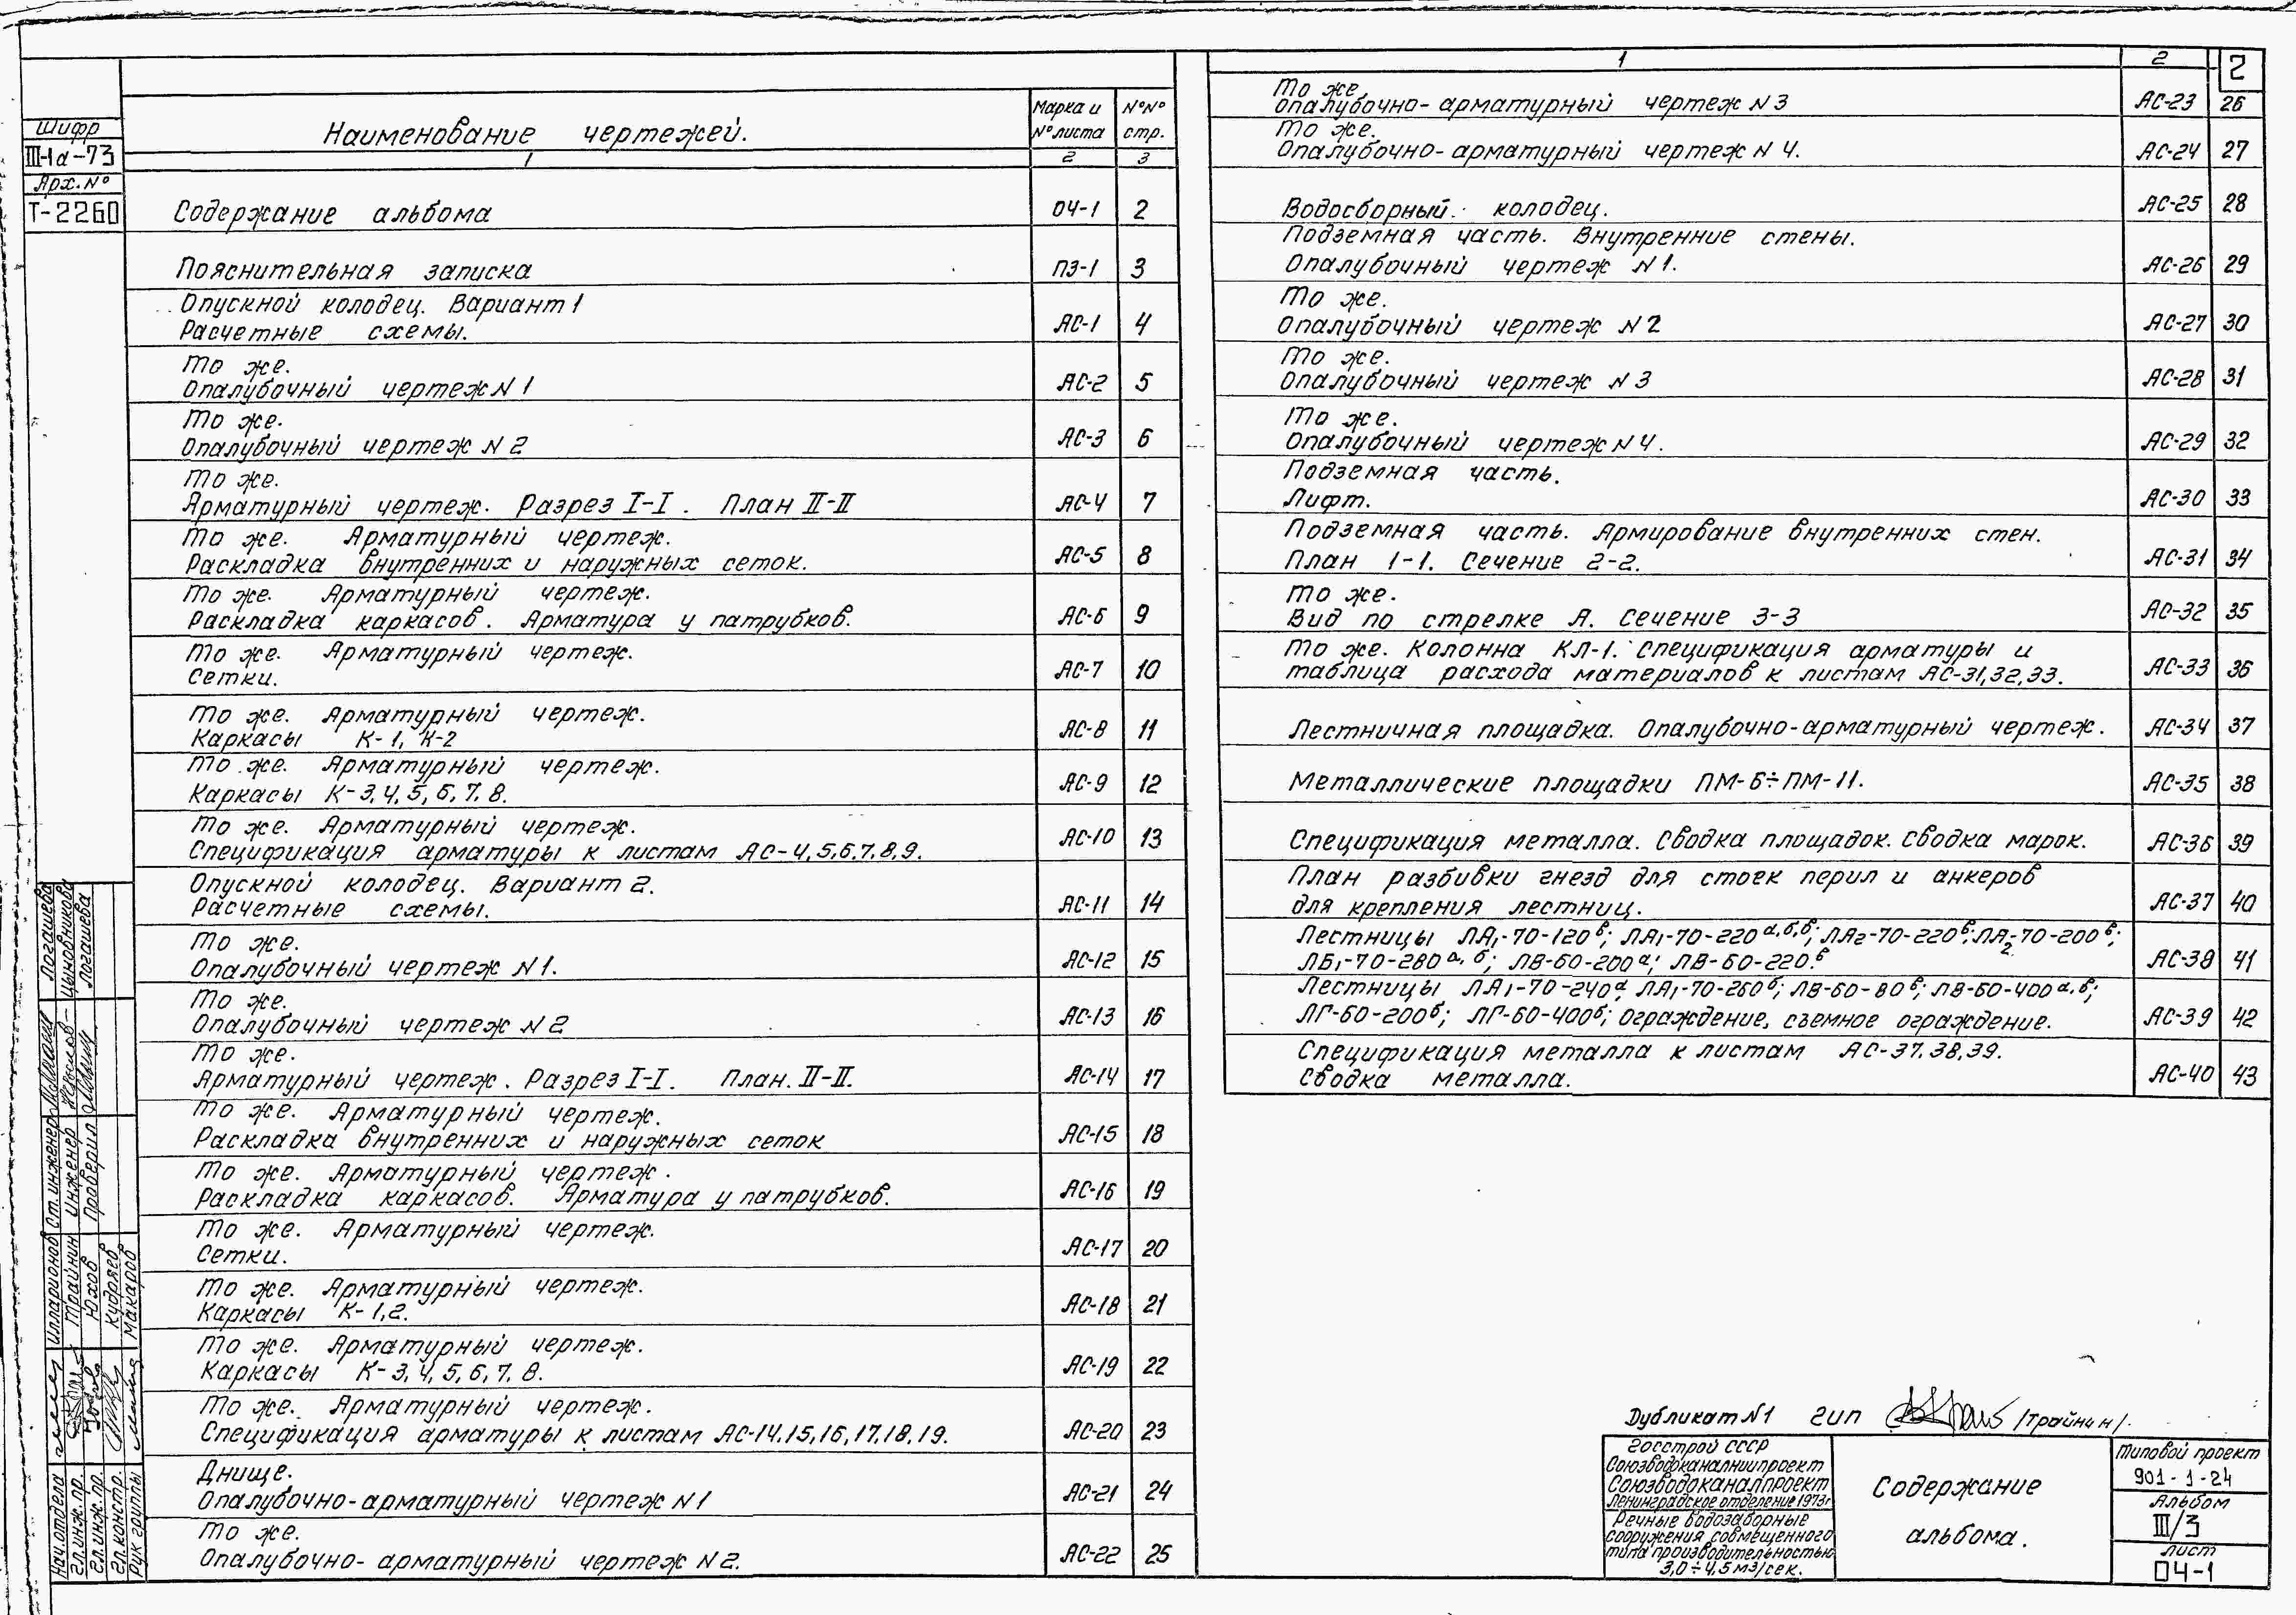 Шифр
III-1а-73
Арх. №
Т-2260
Наименование чертежей.
Марка и № листа
№№ стр.
1 2 3
Содержание альбома ОЧ-1 2
Пояснительная записка ПЗ-1 3
Опускной колодец. Вариант 1
Расчетные схемы. АС-1 4
То же.
Опалубочный чертеж N 1 АС-2 5
То же.
Опалубочный чертеж N 2 АС-3 6
То же.
Арматурный чертеж. Разрез I-I. План II-II АС-4 7
То же. Арматурный чертеж.
Раскладка внутренних и наружных сеток. АС-5 8
То же. Арматурный чертеж.
Раскладка каркасов. Арматура у патрубков. АС-6 9
То же. Арматурный чертеж.
Сетки. АС-7 10
То же. Арматурный чертеж.
Каркасы К-1, К-2 АС-8 11
То же. Арматурный чертеж.
Каркасы К-3,4,5,6,7,8. АС-9 12
То же. Арматурный чертеж.
Спецификация арматуры к листам АС-4,5,6,7,8,9. АС-10 13
Опускной колодец. Вариант 2.
Расчетные схемы. АС-11 14
То же.
Опалубочный чертеж N 1. АС-12 15
То же.
Опалубочный чертеж N 2 АС-13 16
То же.
Арматурный чертеж. Разрез I-I. План. II-II. АС-14 17
То же. Арматурный чертеж.
Раскладка внутренних и наружных сеток АС-15 18
То же. Арматурный чертеж.
Раскладка каркасов. Арматура у патрубков. АС-16 19
То же. Арматурный чертеж.
Сетки. АС-17 20
То же. Арматурный чертеж.
Каркасы К-1,2. АС-18 21
То же. Арматурный чертеж.
Каркасы К-3,4,5,6,7,8. АС-19 22
То же. Арматурный чертеж.
Спецификация арматуры к листам АС-14,15,16,17,18,19. АС-20 23
Днище.
Опалубочно-арматурный чертеж N 1 АС-21 24
То же.
Опалубочно-арматурный чертеж N 2. АС-22 25
1 2 2
То же
опалубочно-арматурный чертеж N 3 АС-23 26
То же.
Опалубочно-арматурный чертеж N 4. АС-24 27
Водосборный колодец. АС-25 28
Подземная часть. Внутренние стены.
Опалубочный чертеж N 1. АС-26 29
То же.
Опалубочный чертеж N 2 АС-27 30
То же.
Опалубочный чертеж N 3 АС-28 31
То же.
Опалубочный чертеж N 4. АС-29 32
Подземная часть.
Лифт. АС-30 33
Подземная часть. Армирование внутренних стен.
План 1-1. Сечение 2-2. АС-31 34
То же.
Вид по стрелке А. Сечение 3-3 АС-32 35
То же. Колонна КЛ-1. Спецификация арматуры и
таблица расхода материалов к листам АС-31,32,33. АС-33 36
Лестничная площадка. Опалубочно-арматурный чертеж. АС-34 37
Металлические площадки ПМ-6÷ПМ-11. АС-35 38
Спецификация металла. Сводка площадок. Сводка марок. АС-36 39
План разбивки гнезд для стоек перил и анкеров
для крепления лестниц. АС-37 40
Лестницы ЛА₁-70-120ᵇ; ЛА₁-70-220а,б,в; ЛА₂-70-220в; ЛА₂-70-200в;
ЛБ₁-70-280а,б; ЛВ-60-200а; ЛВ-60-220.в АС-38 41
Лестницы ЛА₁-70-240а, ЛА₁-70-260б; ЛВ-60-80в; ЛВ-60-400а,в;
ЛГ-60-200б; ЛГ-60-400б; ограждение, съемное ограждение. АС-39 42
Спецификация металла к листам АС-37,38,39.
Сводка металла. АС-40 43
Логашева
Цыновникова
Логашева
Ст. инженер
Инженер
Проверил
Илларионов
Трайнин
Юхов
Кудряев
Макаров
Нач. отдела
Гл. инж. пр.
Гл. инж. пр.
Гл. констр.
Рук группы
Дубликат N 1 ГИП /Трайнин/.
Госстрой СССР
Союзводоканалниипроект
Союзводоканалпроект
Ленинградское отделение 1973г
Речные водозаборные
сооружения совмещенного
типа производительностью
3,0÷4,5 м3/сек.
Содержание
альбома.
Типовой проект
901-1-24
Альбом
III/3
лист
ОЧ-1